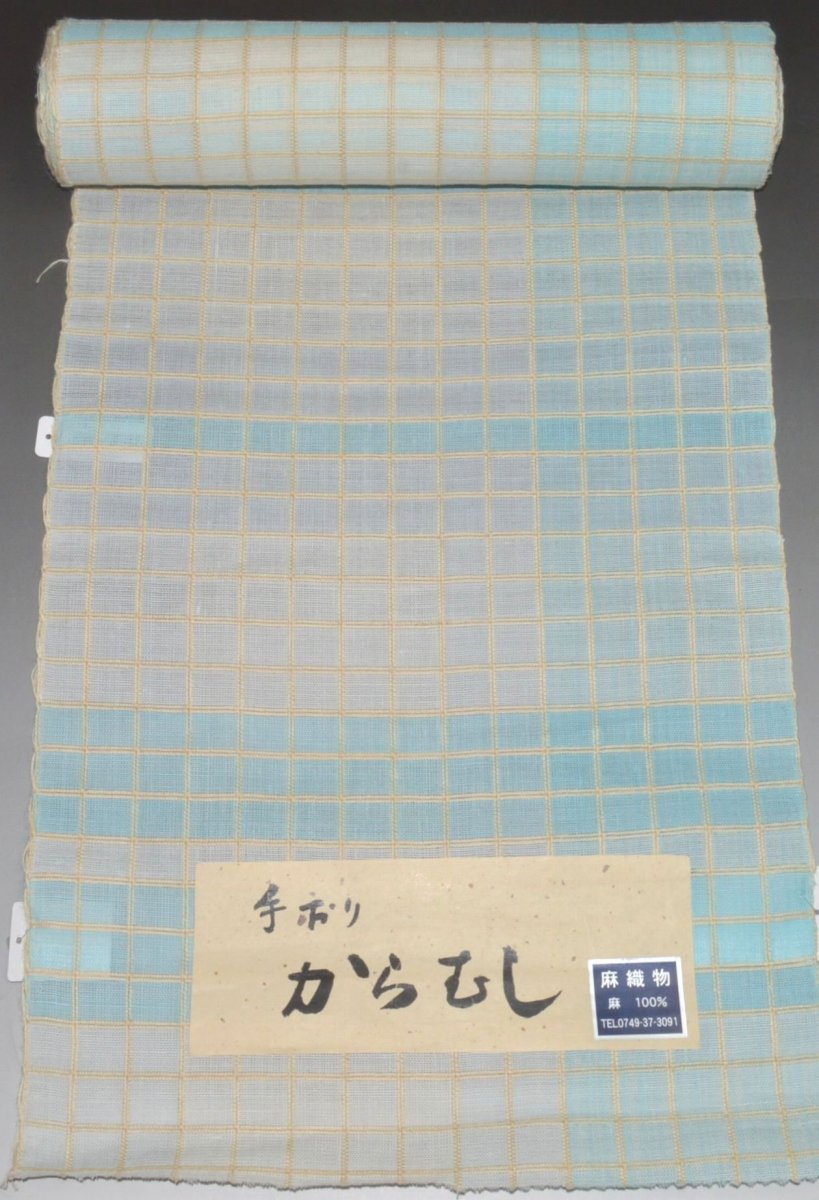 手おり
からむし
麻織物
麻 100%
TEL0749-37-3091